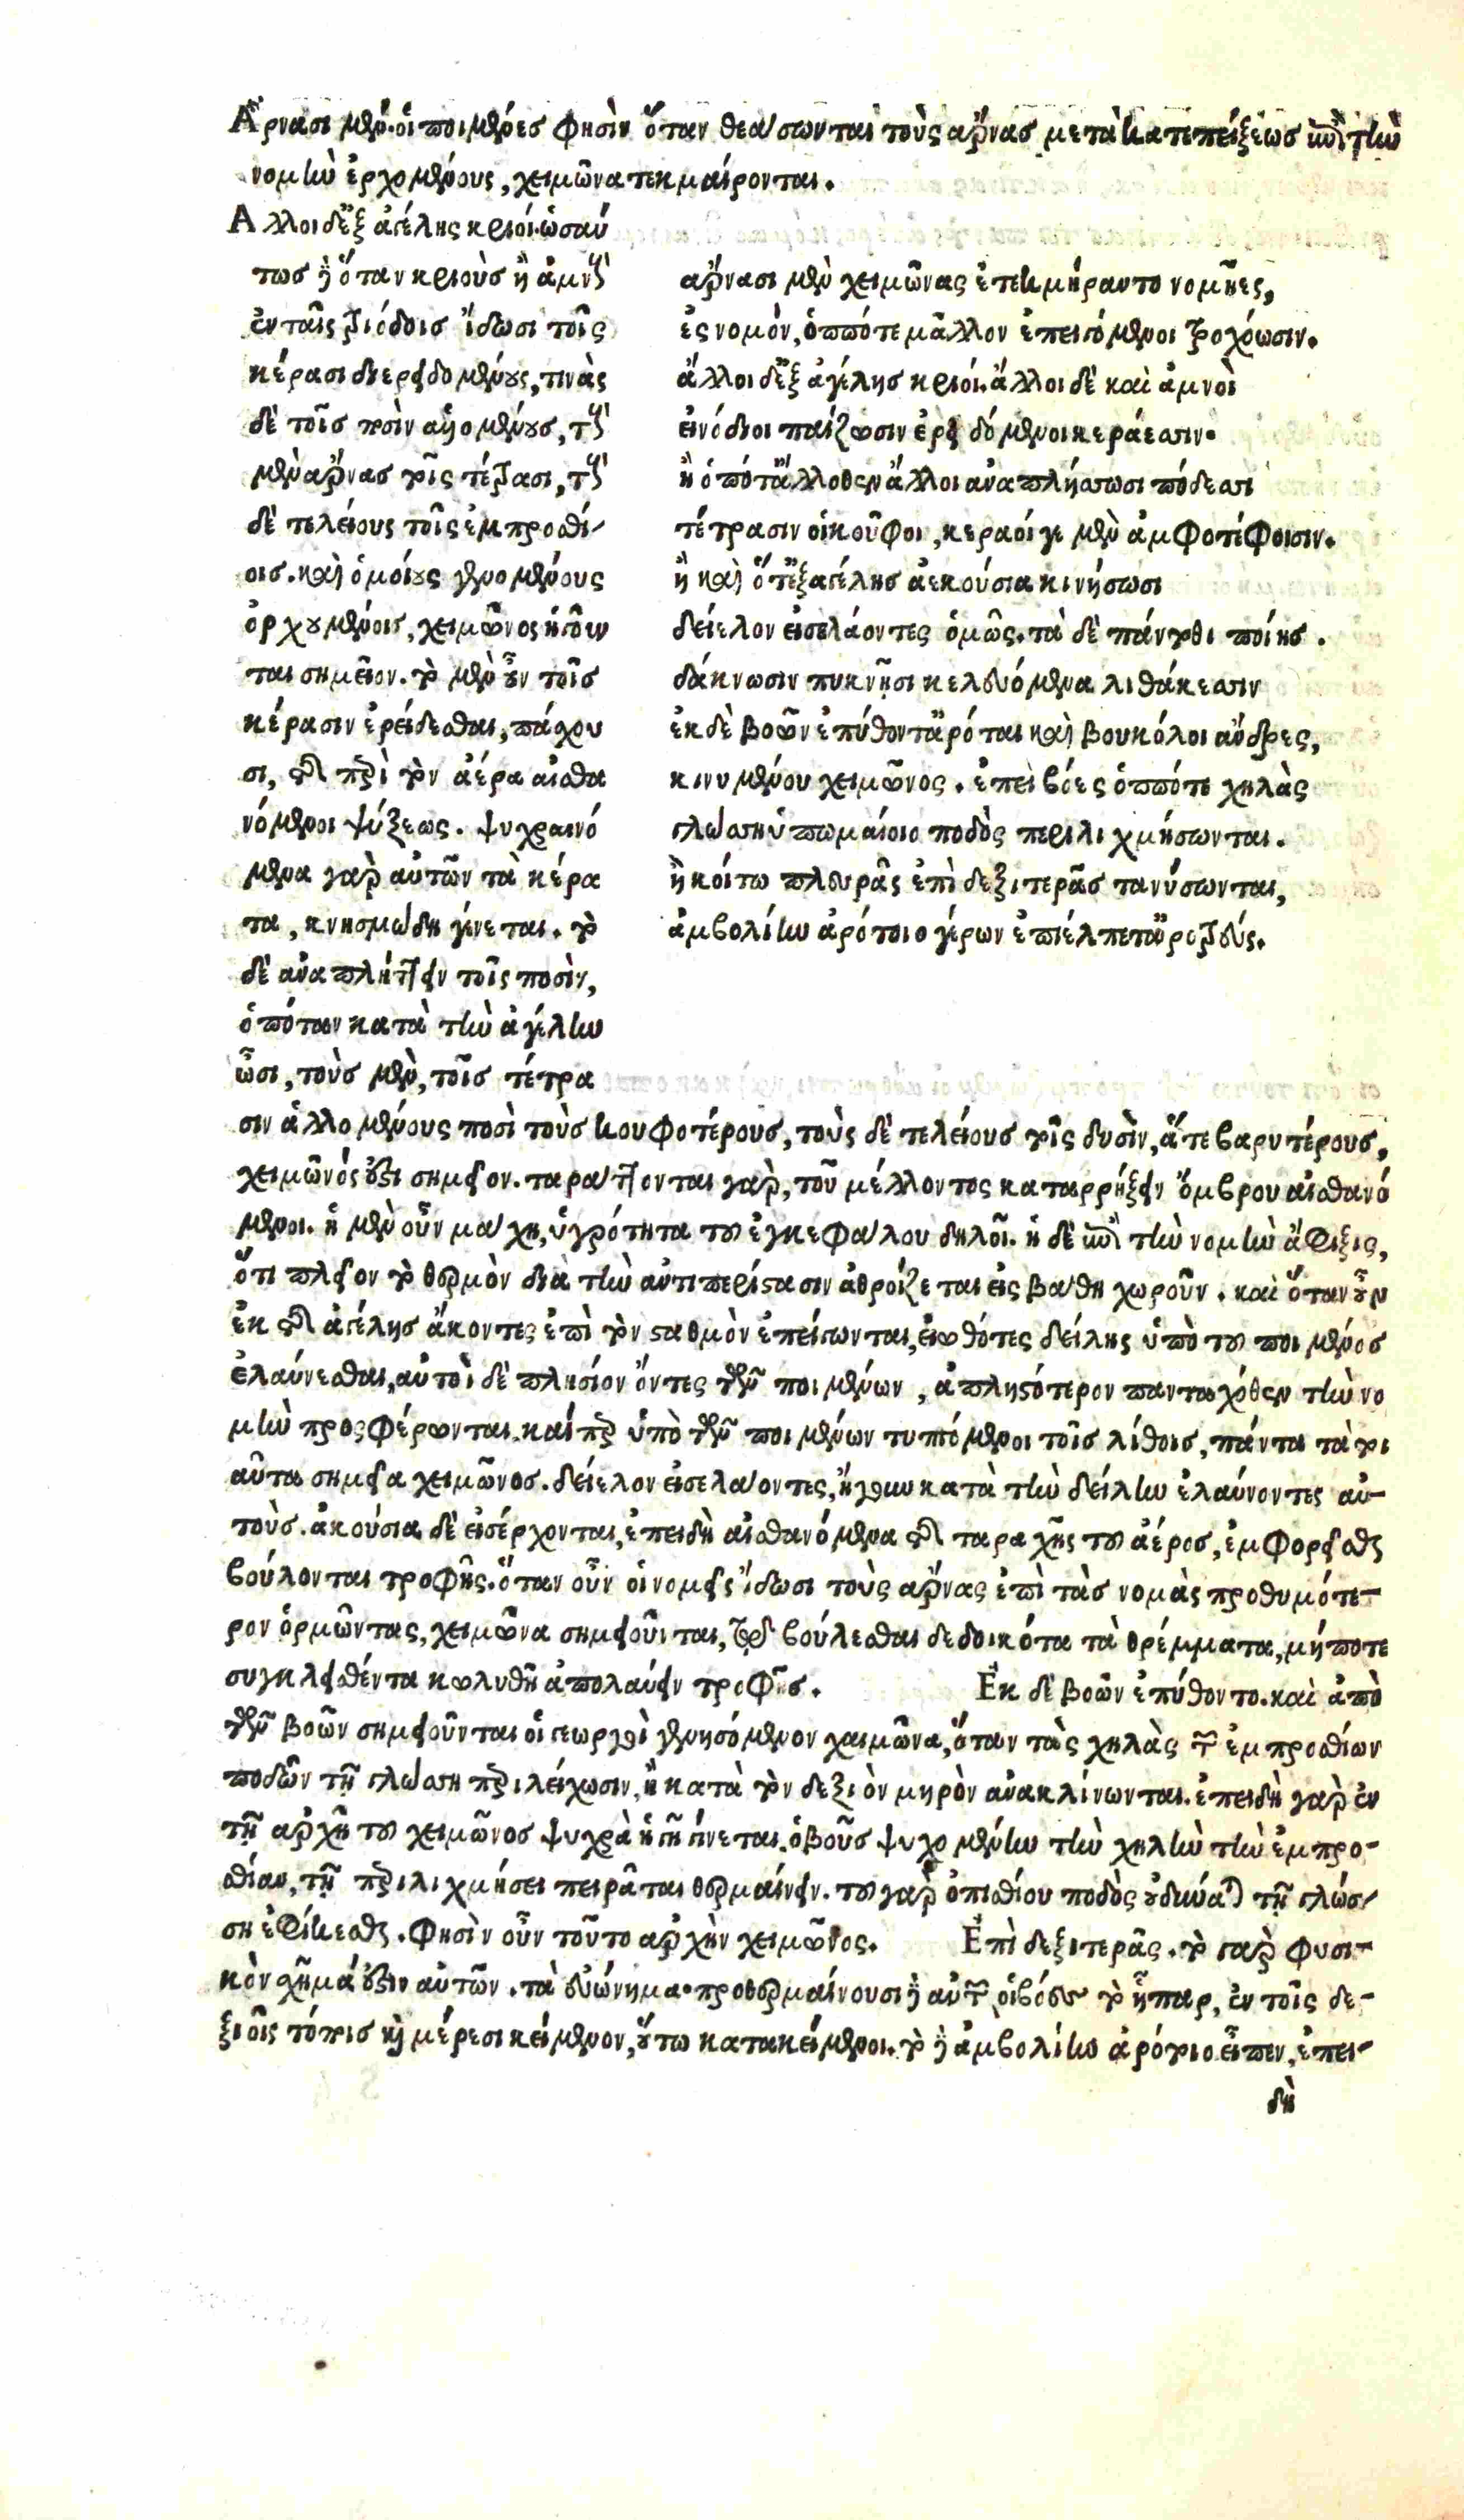 Ἄρνασι μὲν. οἱ ποιμένες φησὶν ὅταν θεάσωνται τοὺς ἄρνας μετὰ κατεπείξεως ἐπὶ τὴν
νομὴν ἐρχομένους, χειμῶνα τεκμαίρονται.
Ἄλλοι δ᾽ ἐξ ἀγέλης κριοί. ὡσαύ
τως ἢ ὅταν κριοὺς ἢ ἀμνοὺς
ἐν ταῖς διόδοις ἴδωσι τοῖς
κέρασι διερειδομένους, τινὰς
δὲ τοῖς ποσὶν ἁλλομένους, τοὺς
μὲν ἄρνας τοῖς τέτρασι, τοὺς
δὲ τελείους τοῖς ἐμπροσθί-
οις. καὶ ὁμοίους γενομένους
ὀρχουμένοις, χειμῶνος ἡγοῦν
ται σημεῖον. τὸ μὲν οὖν τοῖς
κέρασιν ἐρείδεσθαι, πάσχου
σι, τῆς περὶ τὸν ἀέρα αἰσθα
νόμενοι ψύξεως. ψυχραινό
μενα γὰρ αὐτῶν τὰ κέρα
τα, κνησμώδη γίνεται. τὸ
δὲ ἀναπλήττειν τοῖς ποσὶν,
ὁπόταν κατὰ τὴν ἀγέλην
ὦσι, τοὺς μὲν, τοῖς τέτρα
ἄρνασι μὲν χειμῶνας ἐτεκμήραντο νομῆες,
ἐς νομὸν, ὁππότε μᾶλλον ἐπειγόμενοι τροχόωσιν.
ἄλλοι δ᾽ ἐξ ἀγέλης κριοί. ἄλλοι δὲ καὶ ἀμνοὶ
εἰνόδιοι παίζωσιν ἐρειδόμενοι κεράεσσιν.
ἢ ὁπότ᾽ ἄλλοθεν ἄλλοι ἀναπλήσσωσι πόδεσσι
τέτρασιν οἱ κοῦφοι, κεραοί γε μὲν ἀμφοτέροισιν.
ἢ καὶ ὅτ᾽ ἐξ ἀγέλης ἀεκούσια κινήσωσι
δείελον εἰσελάοντες ὁμῶς. τὰ δὲ πάντοθι ποίης.
δάκνωσιν πυκνῇσι κελευόμενα λιθάκεσσιν
ἐκ δὲ βοῶν ἐπύθοντ᾽ ἀρόται καὶ βουκόλοι ἄνδρες,
κινυμένου χειμῶνος. ἐπεὶ βόες ὁππότε χηλὰς
γλώσσῃ ὑπωμαίοιο ποδὸς περιλιχμήσωνται.
ἢ κοίτῳ πλευρὰς ἐπὶ δεξιτερὰς τανύσωνται,
ἀμβολίην ἀρότοιο γέρων ἐπιέλπετ᾽ ἀροτρεύς.
σιν ἁλλομένους ποσὶ τοὺς κουφοτέρους, τοὺς δὲ τελείους τοῖς δυσὶν, ἅτε βαρυτέρους,
χειμῶνός ἐστι σημεῖον. ταράττονται γὰρ, τοῦ μέλλοντος καταρρήξειν ὄμβρου αἰσθανό
μενοι. ἡ μὲν οὖν μάχη, ὑγρότητα τοῦ ἐγκεφάλου δηλοῖ. ἡ δὲ ἐπὶ τὴν νομὴν ἄφιξις,
ὅτι πλεῖον τὸ θερμὸν διὰ τὴν ἀντιπερίστασιν ἀθροίζεται εἰς βάθη χωροῦν. καὶ ὅταν οὖν
ἐκ τῆς ἀγέλης ἄκοντες ἐπὶ τὸν σταθμὸν ἐπείγωνται, εἰωθότες δείλης ὑπὸ τοῦ ποιμένος
ἐλαύνεσθαι, αὐτοὶ δὲ πλησίον ὄντες τῶν ποιμένων, ἀπληστότερον πανταχόθεν τὴν νο
μὴν προσφέρωνται, καίπερ ὑπὸ τῶν ποιμένων τυπτόμενοι τοῖς λίθοις, πάντα τὰ τοι
αῦτα σημεῖα χειμῶνος. δείελον εἰσελάοντες, ἤγουν κατὰ τὴν δείλην ἐλαύνοντες αὐ-
τοὺς. ἀκούσια δὲ εἰσέρχονται, ἐπειδὴ αἰσθανόμενα τῆς ταραχῆς τοῦ ἀέρος, ἐμφορεῖσθαι
βούλονται τροφῆς. ὅταν οὖν οἱ νομεῖς ἴδωσι τοὺς ἄρνας ἐπὶ τὰς νομὰς προθυμότε-
ρον ὁρμῶντας, χειμῶνα σημειοῦνται, τῷ βούλεσθαι δεδοικότα τὰ θρέμματα, μήποτε
συγκλεισθέντα κωλυθῇ ἀπολαύειν τροφῆς. Ἐκ δὲ βοῶν ἐπύθοντο. καὶ ἀπὸ
τῶν βοῶν σημειοῦνται οἱ γεωργοὶ γενησόμενον χειμῶνα, ὅταν τὰς χηλὰς τῶν ἐμπροσθίων
ποδῶν τῇ γλώσσῃ περιλείχωσιν, ἢ κατὰ τὸν δεξιὸν μηρὸν ἀνακλίνωνται. ἐπειδὴ γὰρ ἐν
τῇ ἀρχῇ τοῦ χειμῶνος ψυχρὰ ἡ γῆ γίνεται, ὁ βοῦς ψυχομένην τὴν χηλὴν τὴν ἐμπρο-
σθίαν, τῇ περιλιχμήσει πειρᾶται θερμαίνειν. τοῦ γὰρ ὀπισθίου ποδὸς οὐ δύναται τῇ γλώσ-
σῃ ἐφικέσθαι. φησὶν οὖν τοῦτο ἀρχὴν χειμῶνος. Ἐπὶ δεξιτερὰς. τὸ γὰρ φυσι-
κὸν σχῆμά ἐστιν αὐτῶν. τὰ εὐώνυμα. προθερμαίνουσι δὲ αὐτῶν οἱ βόες τὸ ἧπαρ, ἐν τοῖς δε-
ξιοῖς τόποις καὶ μέρεσι κείμενον, οὕτω κατακείμενοι. τὸ δὲ ἀμβολίην ἀρότοιο εἶπεν, ἐπει-
δὴ